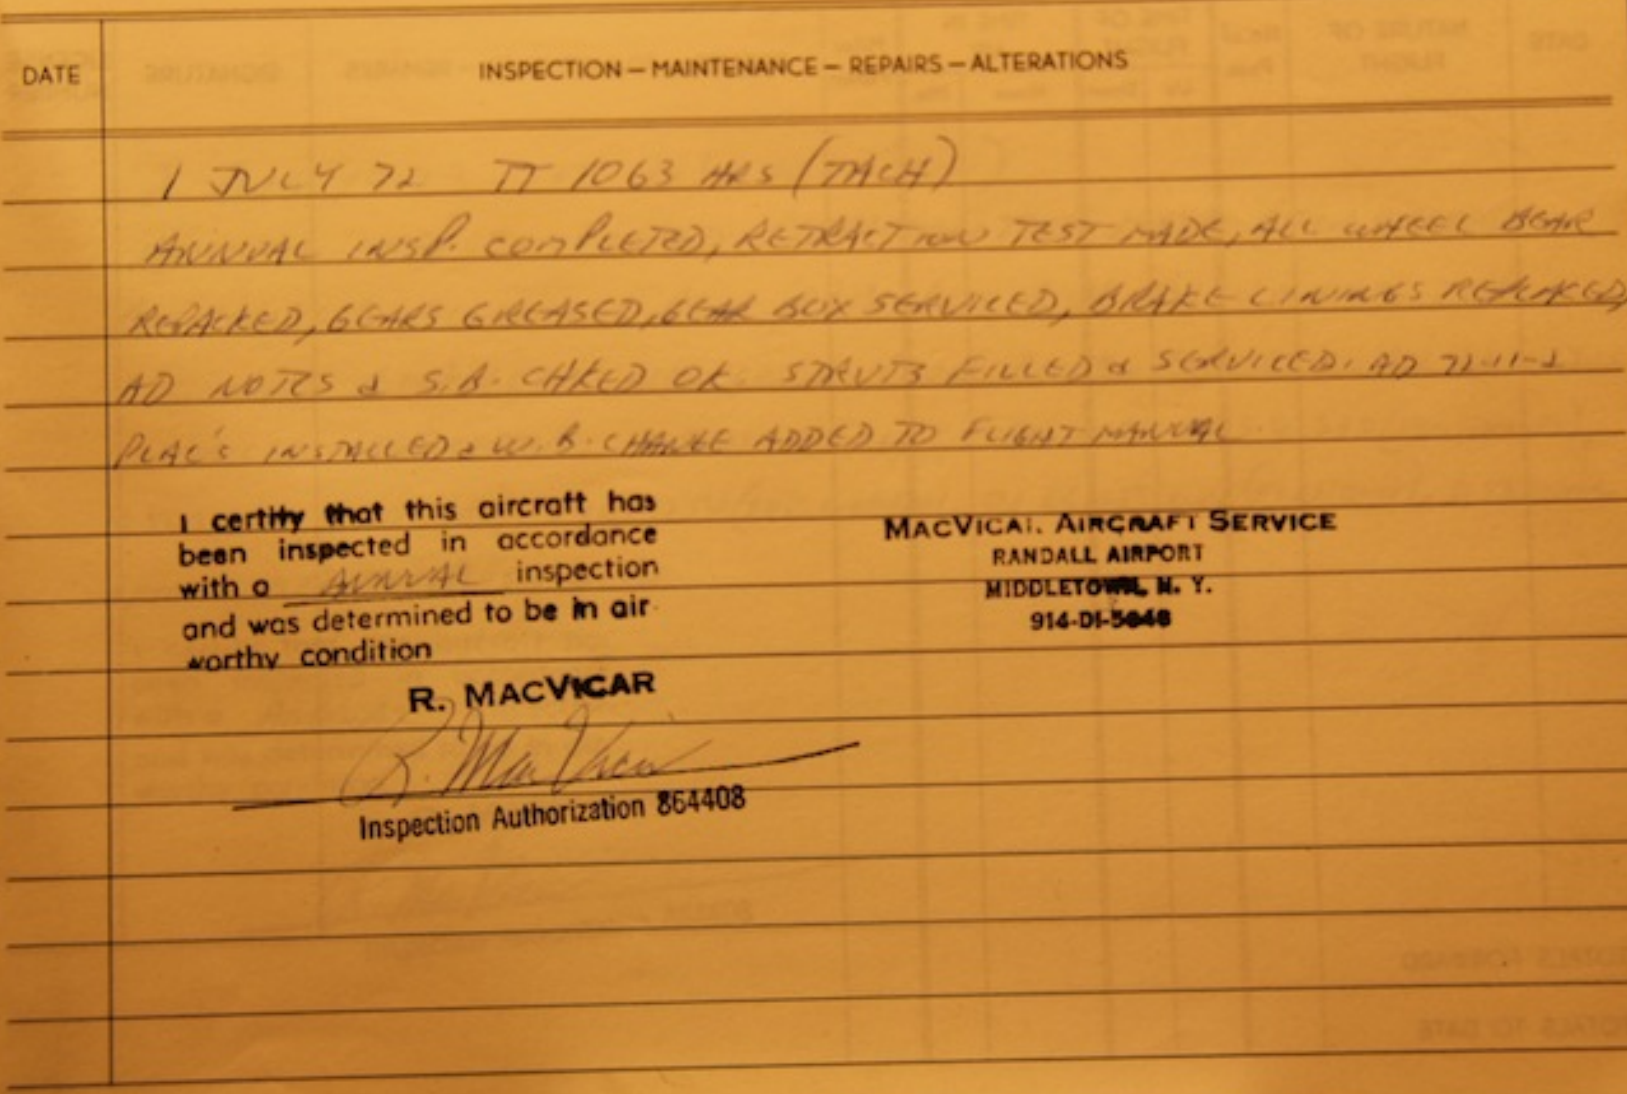 DATE
INSPECTION — MAINTENANCE — REPAIRS — ALTERATIONS
1 JULY 72 TT 1063 HRS (TACH)
ANNUAL INSP. COMPLETED, RETRACTION TEST MADE, ALL WHEEL BEAR
REPACKED, GEARS GREASED, GEAR BOX SERVICED, BRAKE LININGS REPLACED,
AD NOTES & S.B. CHKED OK. STRUTS FILLED & SERVICED. AD
PLAC'S INSTALLED & W.B. CHANGE ADDED TO FLIGHT MANUAL
I certify that this aircraft has
been inspected in accordance
with a ANNUAL inspection
and was determined to be in air
worthy condition
R. MACVICAR
R. MacVicar
Inspection Authorization 864408
MACVICAR AIRCRAFT SERVICE
RANDALL AIRPORT
MIDDLETOWN, N. Y.
TOTALS FORWARD
TOTALS TO DATE